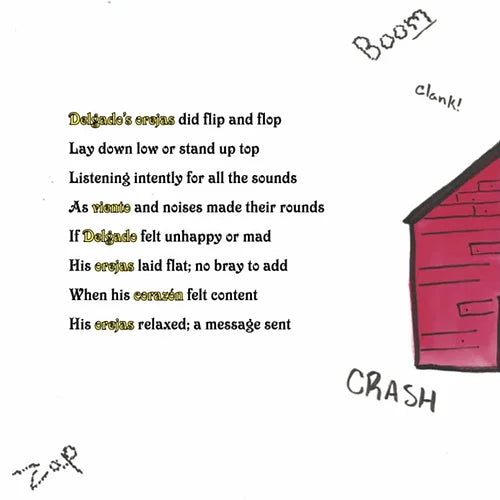 Boom
Clank!
Delgado's orejas did flip and flop
Lay down low or stand up top
Listening intently for all the sounds
As viento and noises made their rounds
If Delgado felt unhappy or mad
His orejas laid flat; no bray to add
When his corazón felt content
His orejas relaxed; a message sent
CRASH
Zap